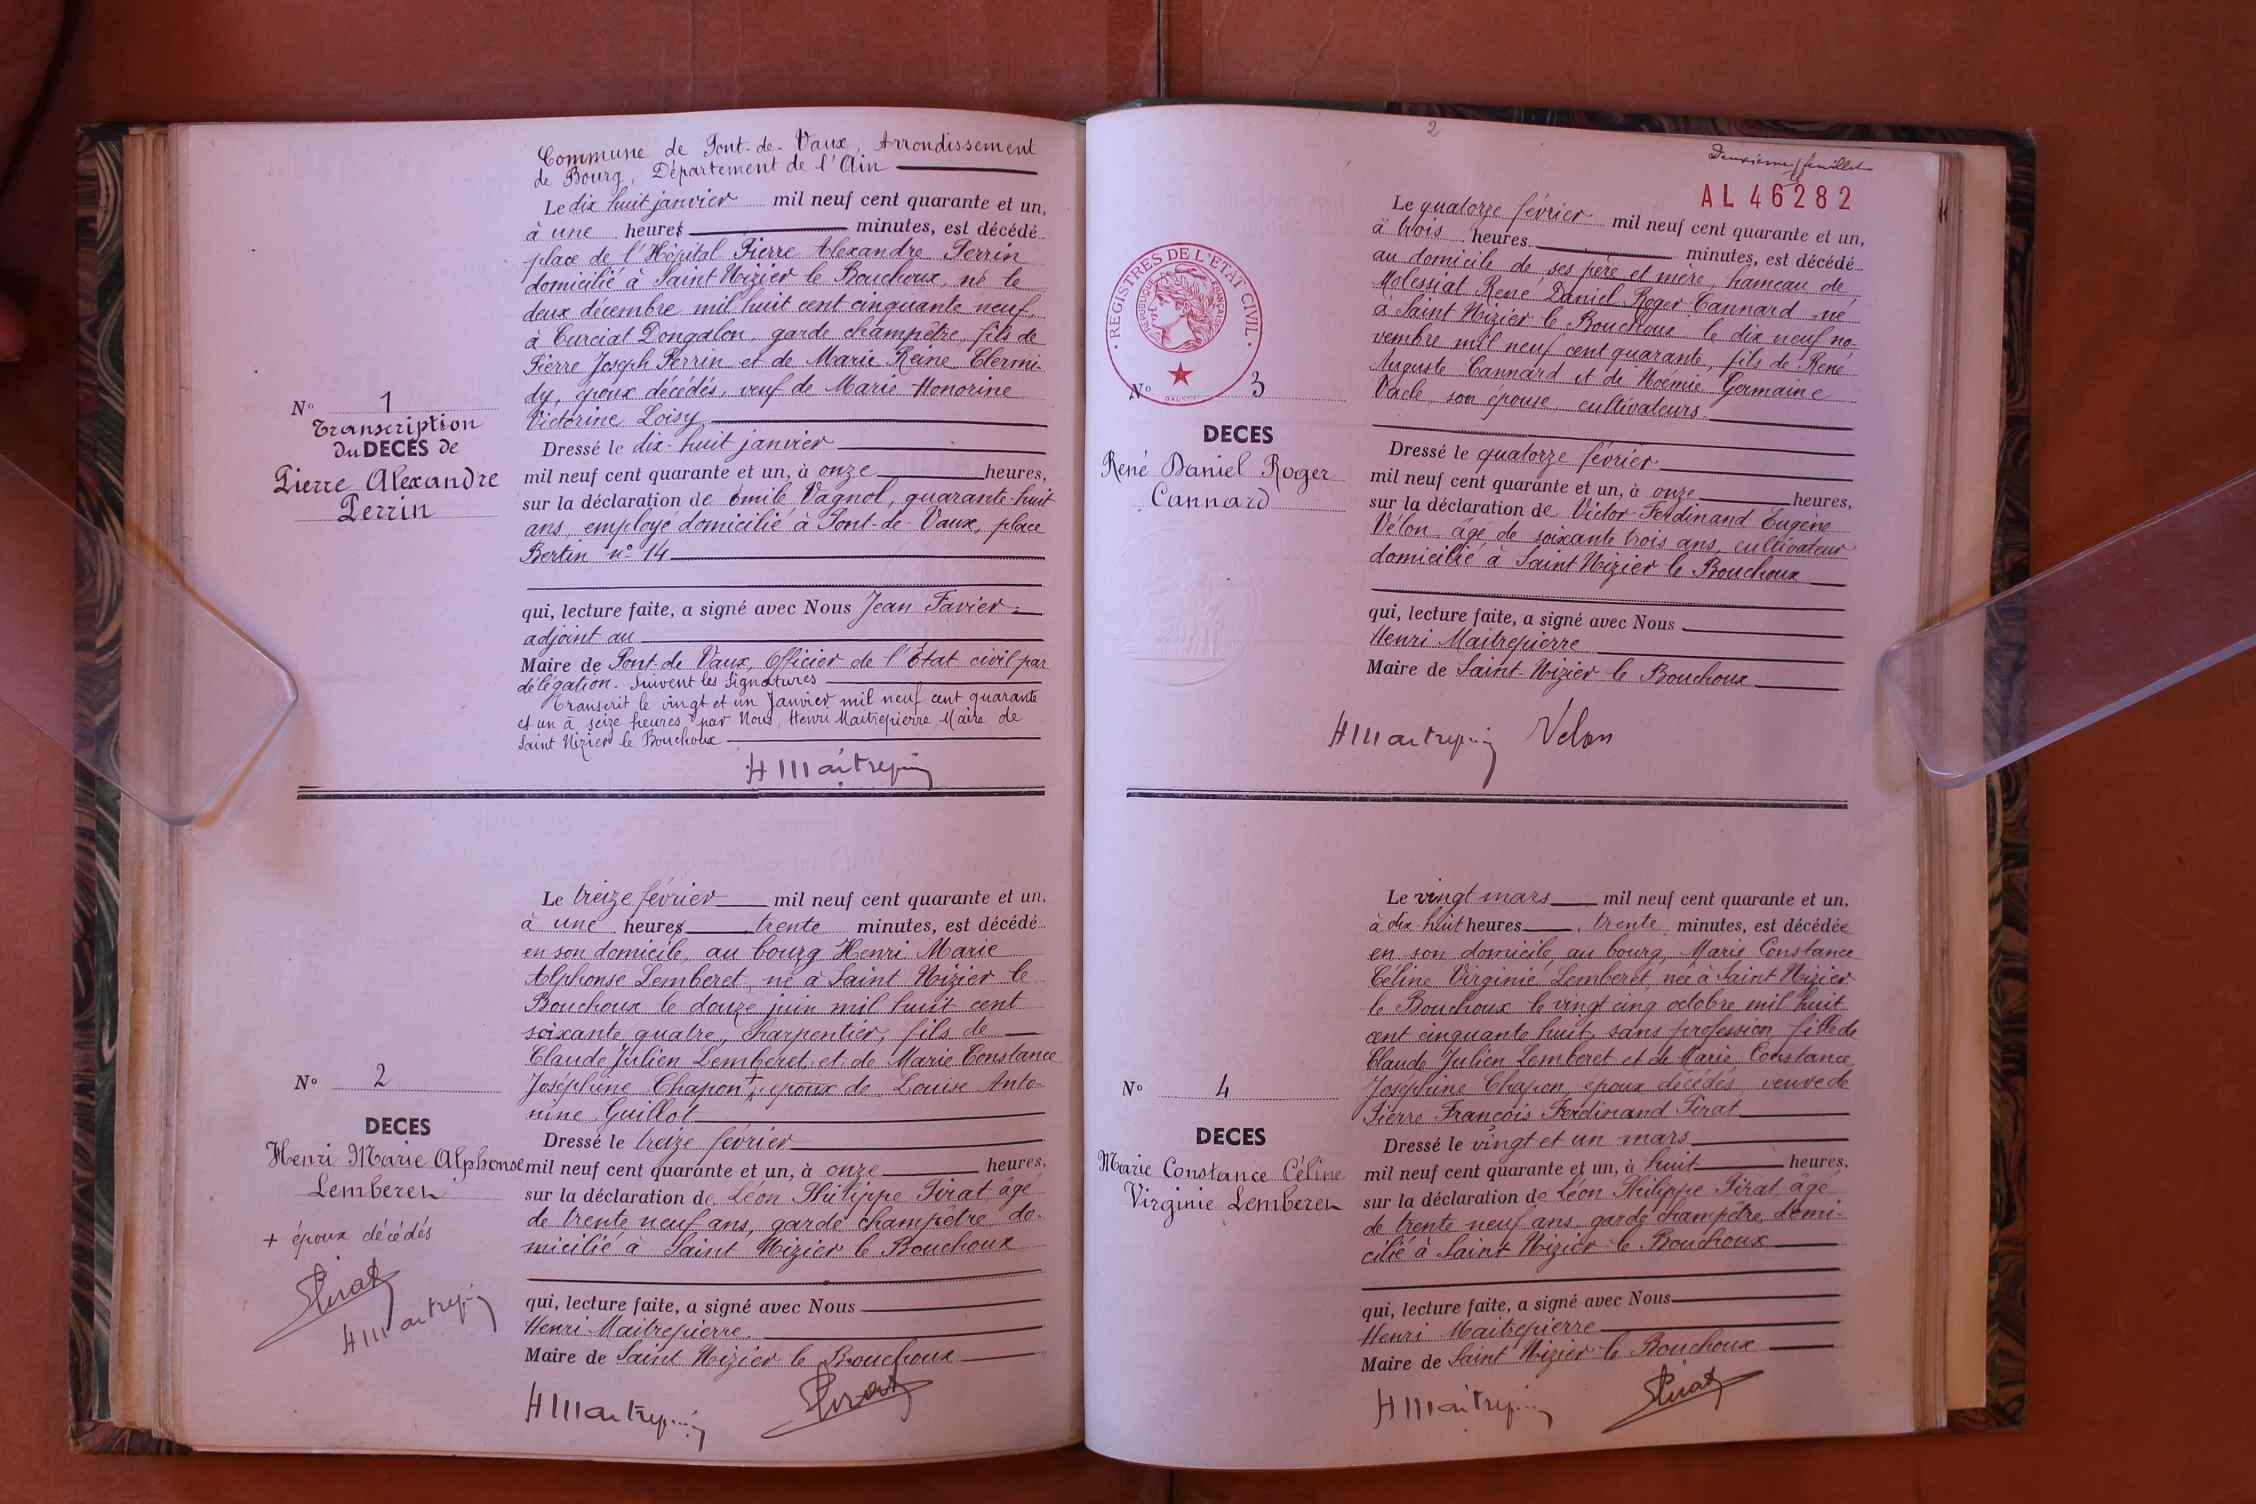 Commune de Pont-de-Vaux, Arrondissement
de Bourg, Département de l'Ain
Le dix huit janvier mil neuf cent quarante et un,
à une heures minutes, est décédé
place de l'Hôpital Pierre Alexandre Perrin
domicilié à Saint Nizier le Bouchoux, né le
deux décembre mil huit cent cinquante neuf,
à Curciat Dongalon, garde champêtre, fils de
Pierre Joseph Perrin et de Marie Reine Clermi-
dy, époux décédés, veuf de Marie Honorine
Victorine Loisy
Nº 1
Transcription
du DECES de
Pierre Alexandre
Perrin
Dressé le dix-huit janvier
mil neuf cent quarante et un, à onze heures,
sur la déclaration de Emile Vagnot, quarante-huit
ans, employé domicilié à Pont-de-Vaux, place
Bertin nº 14
qui, lecture faite, a signé avec Nous Jean Favier
adjoint au
Maire de Pont de Vaux, Officier de l'État civil par
délégation. Suivent les signatures
Transcrit le vingt et un Janvier mil neuf cent quarante
et un à seize heures, par Nous, Henri Maitrepierre, Maire de
Saint Nizier le Bouchoux
HMaitrepierre
Le treize février mil neuf cent quarante et un,
à une heures trente minutes, est décédé
en son domicile, au bourg Henri Marie
Alphonse Lemberet, né à Saint Nizier le
Bouchoux le douze juin mil huit cent
soixante quatre, charpentier, fils de
Claude Julien Lemberet et de Marie Constance
Joséphine Chapon +, époux de Louise Anto-
nine Guillot
Nº 2
DECES
Henri Marie Alphonse
Lemberet
+ époux décédés
Pirat
HMaitrepierre
Dressé le treize février
mil neuf cent quarante et un, à onze heures,
sur la déclaration de Léon Philippe Pirat, âgé
de trente neuf ans, garde champêtre do-
micilié à Saint Nizier le Bouchoux
qui, lecture faite, a signé avec Nous
Henri Maitrepierre
Maire de Saint Nizier le Bouchoux
HMaitrepierre Pirat
2
Deuxième feuillet
AL 46282
REGISTRES DE L'ETAT CIVIL
Le quatorze février mil neuf cent quarante et un,
à trois heures minutes, est décédé
au domicile de ses père et mère, hameau de
Molessiat René Daniel Roger Cannard né
à Saint Nizier le Bouchoux le dix neuf no-
vembre mil neuf cent quarante, fils de René
Auguste Cannard et de Noémie Germaine
Vacle son épouse cultivateurs
Nº 3
DECES
René Daniel Roger
Cannard
Dressé le quatorze février
mil neuf cent quarante et un, à onze heures,
sur la déclaration de Victor Ferdinand Eugène
Vélon, âgé de soixante trois ans, cultivateur
domicilié à Saint Nizier le Bouchoux
qui, lecture faite, a signé avec Nous
Henri Maitrepierre
Maire de Saint-Nizier le Bouchoux
HMaitrepierre Velon
Le vingt mars mil neuf cent quarante et un,
à dix-huit heures trente minutes, est décédée
en son domicile, au bourg, Marie Constance
Céline Virginie Lemberet, née à Saint Nizier
le Bouchoux le vingt cinq octobre mil huit
cent cinquante huit, sans profession, fille de
Claude Julien Lemberet et de Marie Constance
Joséphine Chapon, époux décédés, veuve de
Pierre François Ferdinand Pirat
Nº 4
DECES
Marie Constance Céline
Virginie Lemberet
Dressé le vingt et un mars
mil neuf cent quarante et un, à huit heures,
sur la déclaration de Léon Philippe Pirat, âgé
de trente neuf ans, garde champêtre, domi-
cilié à Saint Nizier le Bouchoux
qui, lecture faite, a signé avec Nous
Henri Maitrepierre
Maire de Saint Nizier le Bouchoux
HMaitrepierre Pirat